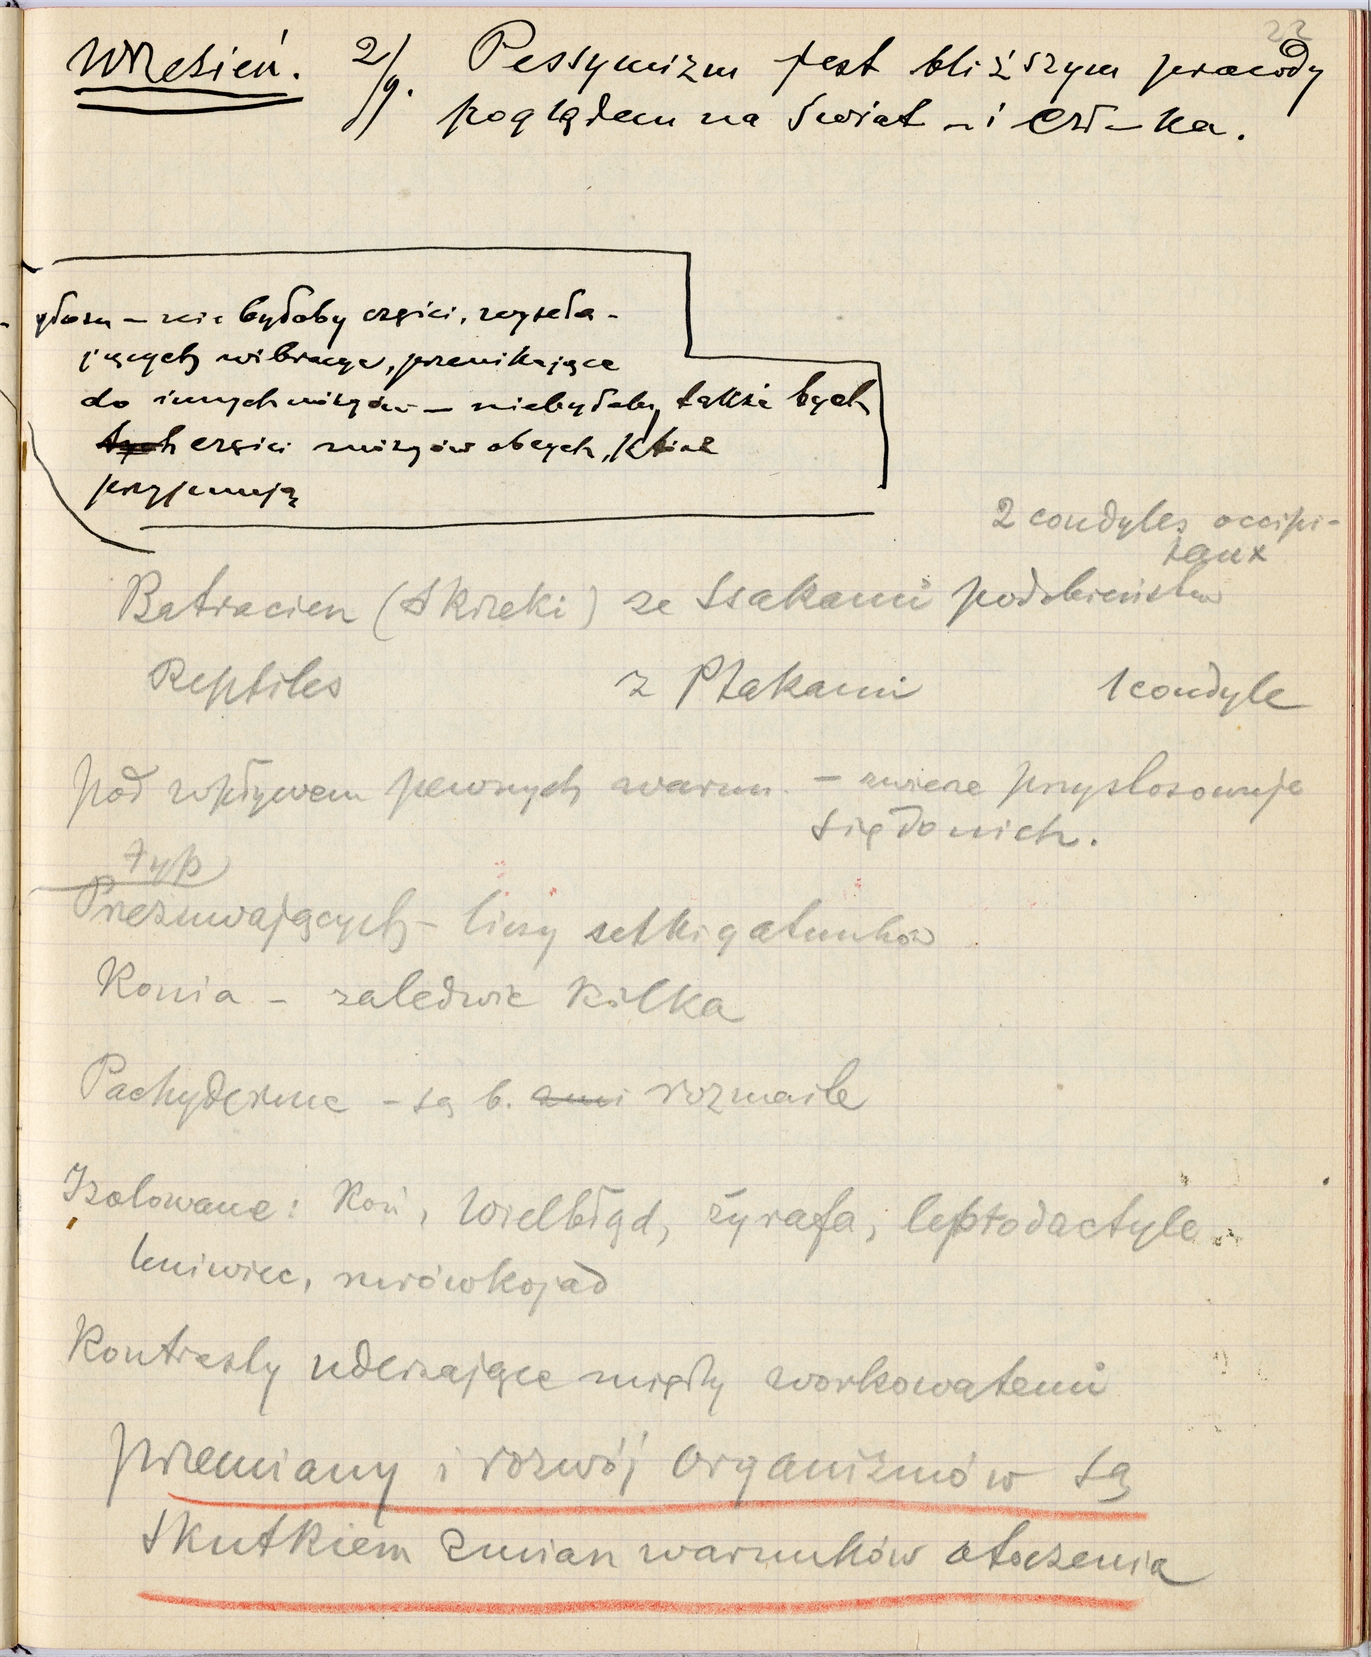 22
Wrzesień. 2/9. Pessymizm jest bliższym prawdy
poglądem na świat – i czł–ka.
głosu – nie byłoby części, wysyła-
jących wibracye, przenikające
do innych mózgów – niebyłoby także tych
tych części mózgów obcych, które
przyjmują
2 condyles occipi-
taux
Batracien (skrzeki) ze ssakami podobieństwo
Reptiles z Ptakami 1 condyle
pod wpływem pewnych warun. – zwierz przystosowuje
się do nich.
typ
Przeżuwających – liczy setki gatunków
Konia – zaledwie kilka
Pachyderme – są b. rozmaite
Izolowane: Koń, wielbłąd, żyrafa, leptodactyle
leniwiec, mrówkojad
Kontrasty uderzające między workowatemi
przemiany i rozwój organizmów są
skutkiem zmian warunków otoczenia